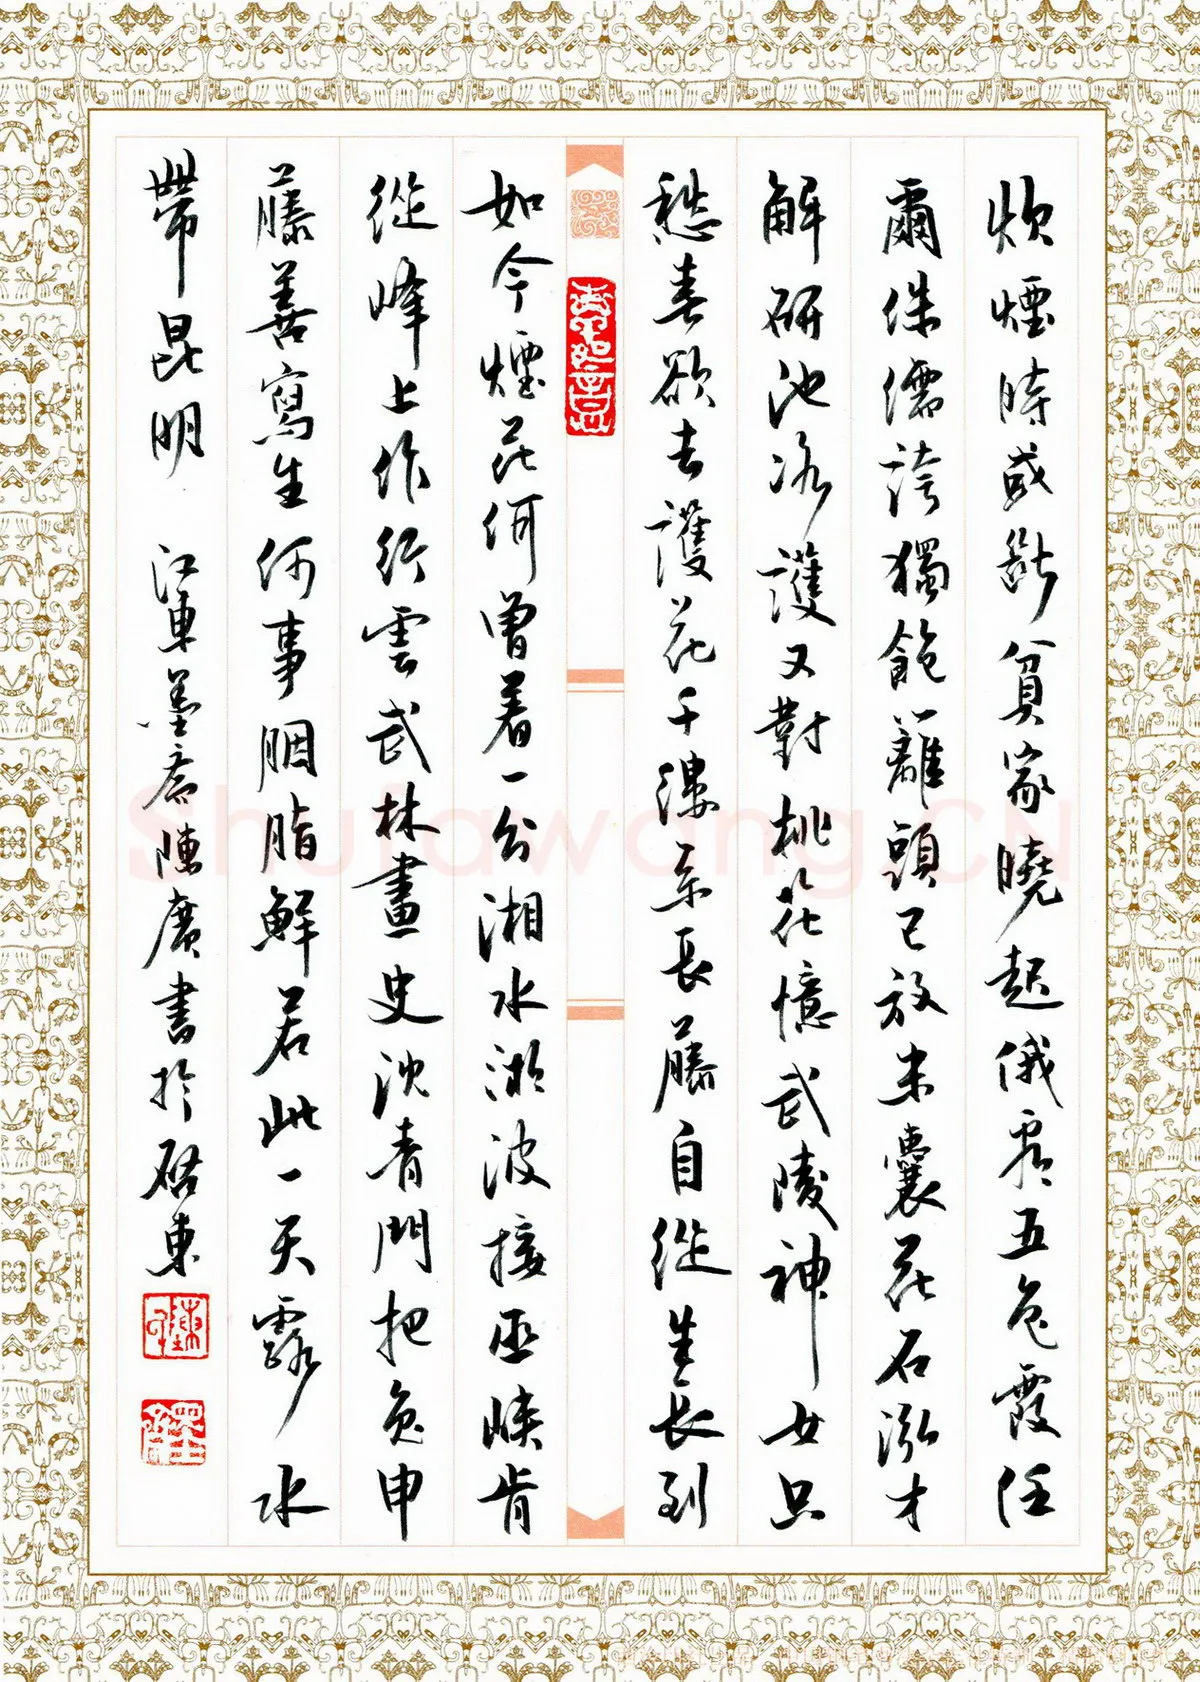 炊煙時或斷貧家曉起俄看五色霞任
爾侏儒誇獨飽籬頭已放米囊花石泓才
解研池冰護又對桃花憶武陵神女只
愁春欲去護花千縷系長藤自從生長到
如今煙花何曾着一分湘水湘波接巫峽肯
從峰上作行雲武林畫史沈青門把兔申
藤善寫生何事胭脂鮮若此一天露水
帶昆明 江東墨齋陳廣書於啟東
Shufawang.CN